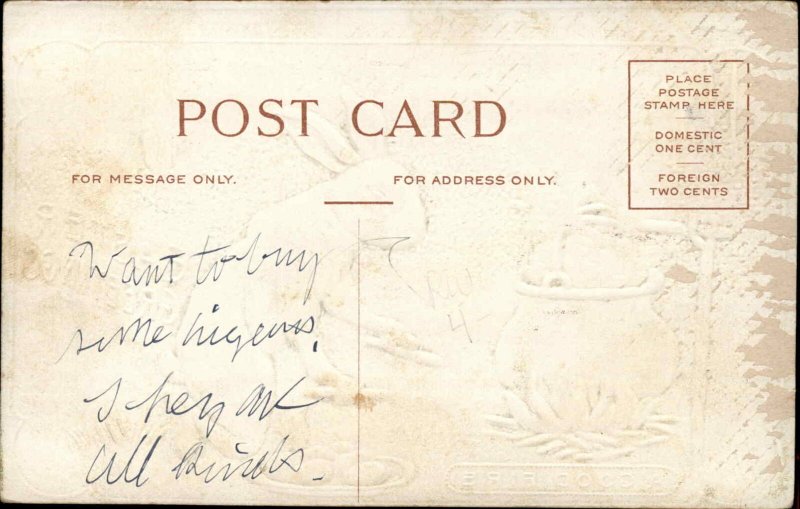 POST CARD
FOR MESSAGE ONLY.
FOR ADDRESS ONLY.
PLACE
POSTAGE
STAMP HERE
DOMESTIC
ONE CENT
FOREIGN
TWO CENTS
Want to buy
some
They are
all kinds.
4-